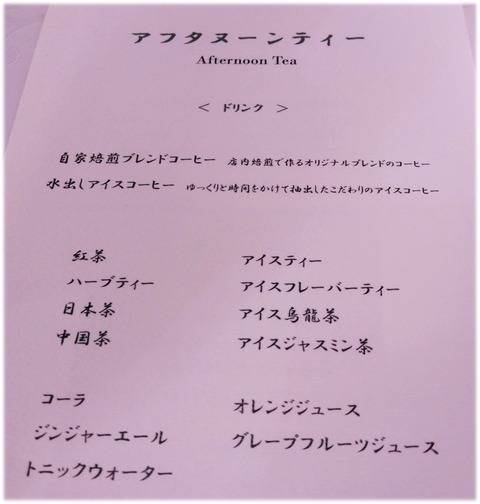 アフタヌーンティー
Afternoon Tea
＜ ドリンク ＞
自家焙煎ブレンドコーヒー 店内焙煎で作るオリジナルブレンドのコーヒー
水出しアイスコーヒー ゆっくりと時間をかけて抽出したこだわりのアイスコーヒー
紅茶 アイスティー
ハーブティー アイスフレーバーティー
日本茶 アイス烏龍茶
中国茶 アイスジャスミン茶
コーラ オレンジジュース
ジンジャーエール グレープフルーツジュース
トニックウォーター